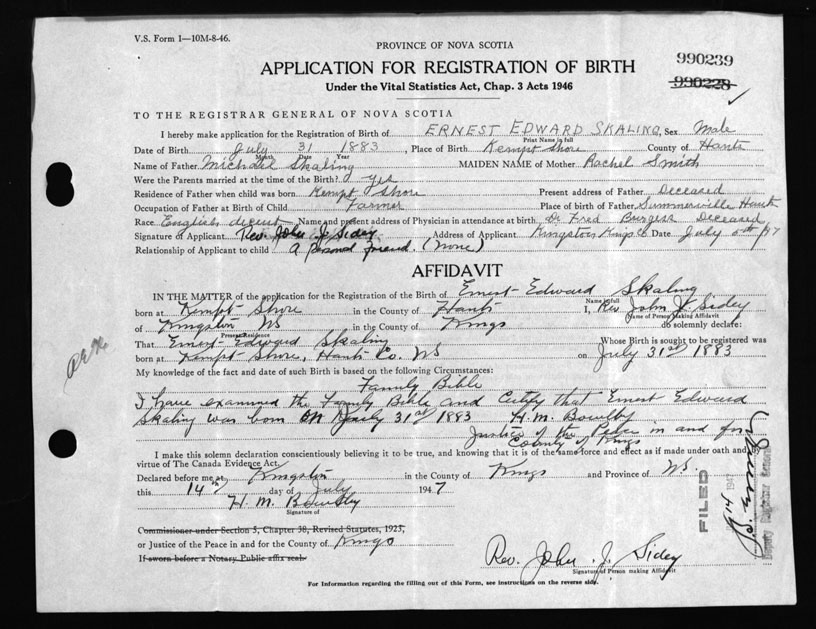 V.S. Form 1—10M-8-46.
PROVINCE OF NOVA SCOTIA
990239
APPLICATION FOR REGISTRATION OF BIRTH
990228
Under the Vital Statistics Act, Chap. 3 Acts 1946
TO THE REGISTRAR GENERAL OF NOVA SCOTIA
I hereby make application for the Registration of Birth of ERNEST EDWARD SKALING, Sex Male
Print Name in full
Date of Birth July 31 1883, Place of Birth Kempt Shore County of Hants
Month Date Year
Name of Father Michael Skaling MAIDEN NAME of Mother Rachel Smith
Were the Parents married at the time of the Birth? Yes
Residence of Father when child was born Kempt Shore Present address of Father Deceased
Occupation of Father at Birth of Child Farmer Place of birth of Father Summerville Hants
Race English descent Name and present address of Physician in attendance at birth Dr Fred Burgess Deceased
Signature of Applicant Rev. John J. Sidey Address of Applicant Kingston Kings Co Date July 5th/47
Relationship of Applicant to child A personal friend. (None)
AFFIDAVIT
IN THE MATTER of the application for the Registration of the Birth of Ernest Edward Skaling
Name in full
born at Kempt Shore in the County of Hants I, Rev. John J. Sidey
Name of Person Making Affidavit
of Kingston NS in the County of Kings do solemnly declare:
Present Residence
That Ernest Edward Skaling Whose Birth is sought to be registered was
born at Kempt Shore, Hants Co. NS on July 31st 1883
My knowledge of the fact and date of such Birth is based on the following Circumstances:
Family Bible
I have examined the Family Bible and Certify that Ernest Edward
Skaling was born on July 31st 1883 H. M. Bowlby
Justice of the Peace in and for
County of Kings
I make this solemn declaration conscientiously believing it to be true, and knowing that it is of the same force and effect as if made under oath and by
virtue of The Canada Evidence Act.
Declared before me at Kingston in the County of Kings and Province of NS.
this 14th day of July 1947
H. M. Bowlby
Signature of
Commissioner under Section 5, Chapter 38, Revised Statutes, 1923,
or Justice of the Peace in and for the County of Kings
If sworn before a Notary Public affix seal.
Rev. John J. Sidey
Signature of Person making Affidavit
For Information regarding the filling out of this Form, see instructions on the reverse side.
FILED
Deputy Registrar General